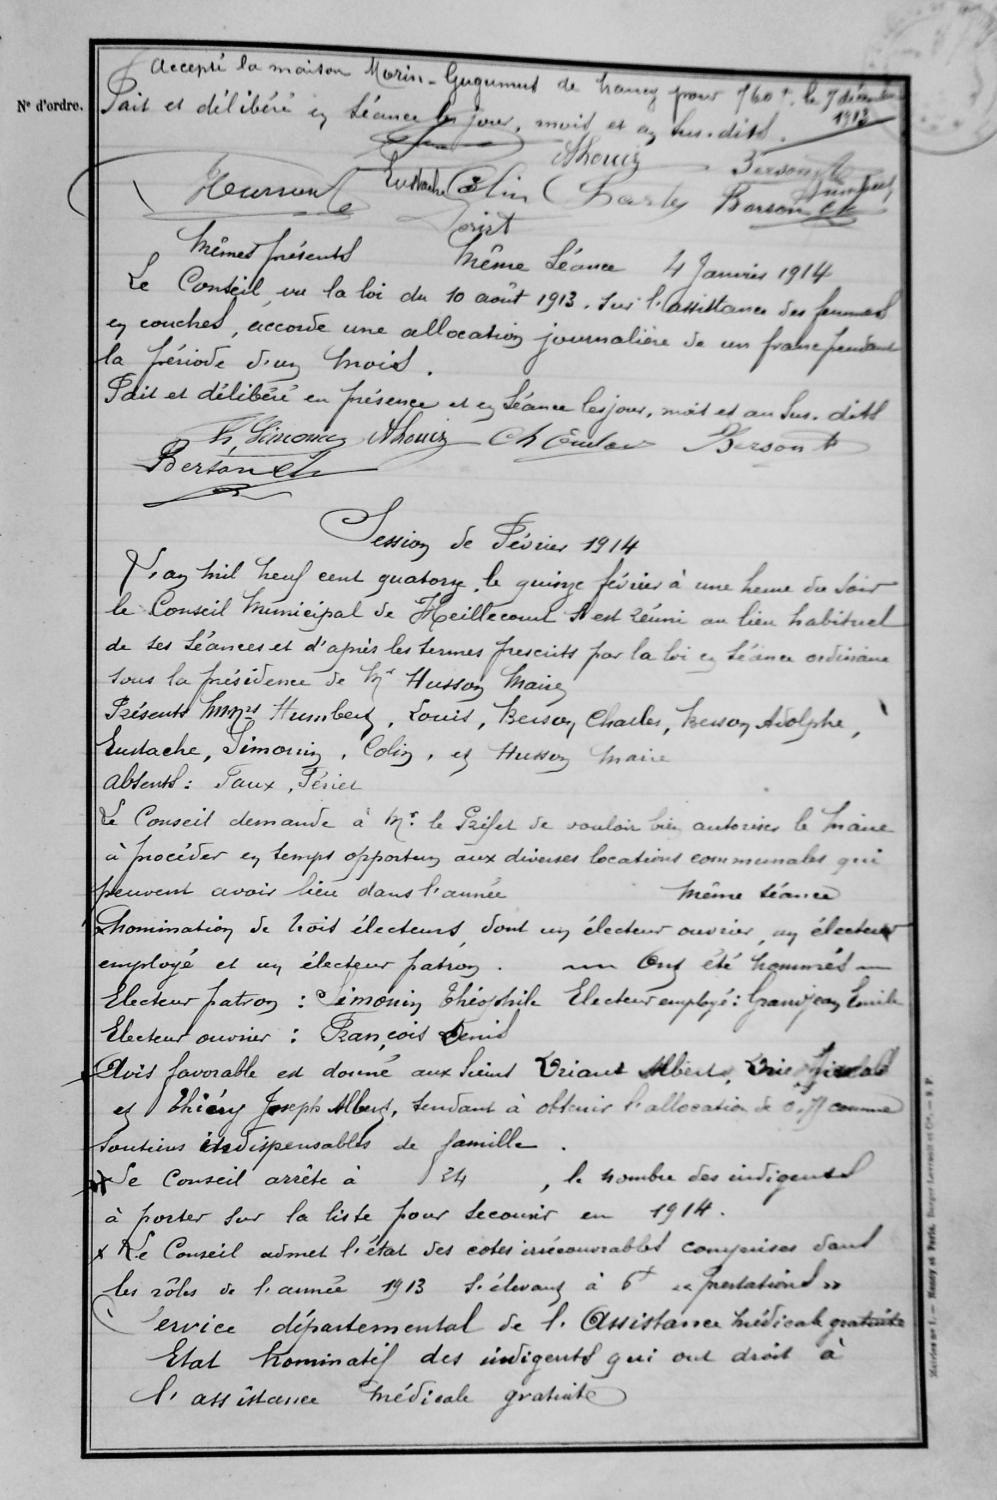 accepté la maison Morin-Gugumus de Nancy pour 760 f. le 7 décembre
1913
N° d'ordre.
Fait et délibéré en séance les jour, mois et an sus-dits.
AThouin
Bersonet
Husson
Eustache Colin Charles Berson
Mêmes présents Même Séance 4 Janvier 1914
Le Conseil, vu la loi du 10 août 1913. sur l'assistance des femmes
en couches, accorde une allocation journalière de un franc pendant
la période d'un mois.
Fait et délibéré en présence et en séance les jour, mois et an sus-dits
Th. Simonin Ch Eustache Berson
Berson
Session de Février 1914
L'an mil neuf cent quatorze, le quinze février à une heure du soir
le Conseil Municipal de Heillecourt s'est réuni au lieu habituel
de ses séances et d'après les termes prescrits par la loi en séance ordinaire
sous la présidence de Mr Husson Maire
Présents MMrs Humbert, Louis, Berson Charles, Berson Adolphe,
Eustache, Simonin, Colin, et Husson Maire
absents : Faux, Fériet
Le Conseil demande à Mr. le Préfet de vouloir bien autoriser le Maire
à procéder en temps opportun aux diverses locations communales qui
peuvent avoir lieu dans l'année Même séance
Nomination de trois électeurs, dont un électeur ouvrier, un électeur
employé et un électeur patron. — Ont été nommés —
Electeur patron : Simonin Théophile Electeur employé : Grandjean Emile
Electeur ouvrier : François Denis
Avis favorable est donné aux sieurs Briant Albert,
et Thiéry Joseph Albert, tendant à obtenir l'allocation de 0,75 comme
soutiens indispensables de famille.
x Le Conseil arrête à 24, le nombre des indigents
à porter sur la liste pour secourir en 1914.
x Le Conseil admet l'état des cotes irrécouvrables comprises dans
les rôles de l'année 1913 s'élevant à 6 f « prestations »
Service départemental de l'Assistance médicale gratuite
Etat nominatif des indigents qui ont droit à
l'assistance médicale gratuite
Mairies n° 1. — Nancy et Paris. Berger-Levrault et Cie. — S P.